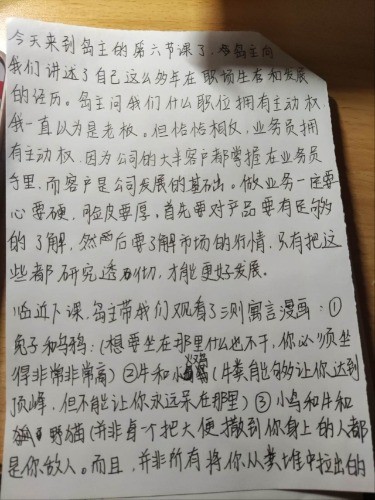 今天来到岛主的第六节课了,岛主向
我们讲述了自己这么多年在职场生存和发展
的经历。岛主问我们什么职位拥有主动权
我一直以为是老板。但恰恰相反,业务员拥
有主动权,因为公司的大半客户都掌握在业务员
手里,而客户是公司发展的基础。做业务一定要
心要硬,脸皮要厚。首先要对产品要有足够
的了解,然后要了解市场的行情,只有把这
些都研究透彻,才能更好发展。
临近下课,岛主带我们观看了三则寓言漫画:①
兔子和乌鸦:(想要坐在那里什么也不干,你必须坐
得非常非常高)②牛和火鸡(牛粪能够让你达到
顶峰,但不能让你永远呆在那里)③小鸟和牛和
野猫(并非每一个把大便撒到你身上的人都
是你敌人。而且,并非所有将你从粪堆中拉出的